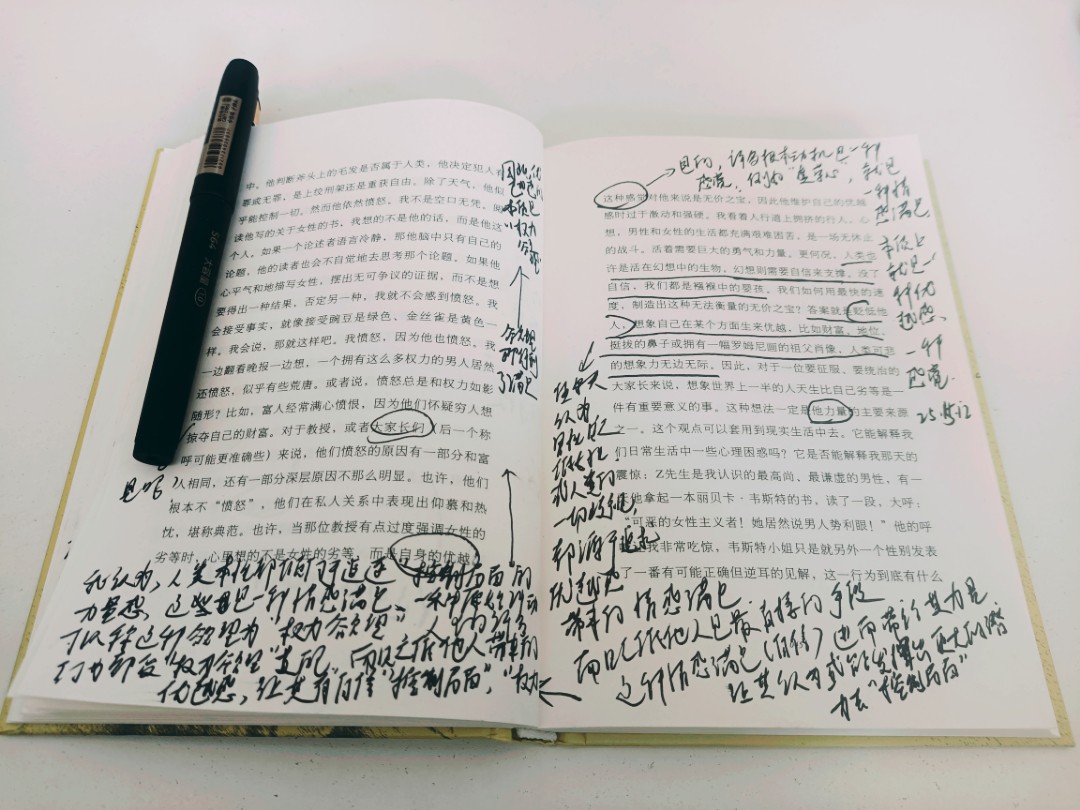 中。他判断斧头上的毛发是否属于人类。他决定犯人
罪或无罪，是上绞刑架还是重获自由。除了天气，他似
乎能控制一切。然而他依然愤怒。我不是空口无凭。阅
读他写的关于女性的书，我想的不是他的话，而是他这
个人。如果一个论述者语言冷静，那他脑中只有自己的
论题，他的读者也会不自觉地去思考那个论题。如果他
心平气和地描写女性，摆出无可争议的证据，而不是想
要得出一种结果，否定另一种，我就不会感到愤怒。我
会接受事实，就像接受豌豆是绿色、金丝雀是黄色一
样。我会说，那就这样吧。我愤怒，因为他也愤怒。我
一边翻看晚报一边想，一个拥有这么多权力的男人居然
还愤怒，似乎有些荒唐。或者说，愤怒总是和权力如影
随形？比如，富人经常满心愤恨，因为他们怀疑穷人想
掠夺自己的财富。对于教授，或者大家长们（后一个称
呼可能更准确些）来说，他们愤怒的原因有一部分和富
人相同，还有一部分深层原因不那么明显。也许，他们
根本不“愤怒”，他们在私人关系中表现出仰慕和热
忱，堪称典范。也许，当那位教授有点过度强调女性的
劣等时，心里想的不是女性的劣等，而是自身的优越。
是吗？
我认为，人类本性都倾向于追逐“控制局面”的
力量感，这些都是一种情感满足
可以将这个部分理为“权力合理”
优越感，让其有自信“控制局面”，“权力
这种感觉对他来说是无价之宝，因此他维护自己的优越
感时过于激动和强硬。我看着人行道上拥挤的行人，心
想，男性和女性的生活都充满艰难困苦，是一场无休止
的战斗。活着需要巨大的勇气和力量。更何况，人类也
许是活在幻想中的生物，幻想则需要自信来支撑。没了
自信，我们都是襁褓中的婴孩。我们如何用最快的速
度，制造出这种无法衡量的无价之宝？答案就是贬低他
人，想象自己在某个方面生来优越，比如财富、地位、
挺拔的鼻子或拥有一幅罗姆尼画的祖父肖像，人类可悲
的想象力无边无际。因此，对于一位要征服、要统治的
大家长来说，想象世界上一半的人天生比自己劣等是一
件有重要意义的事。这种想法一定是他力量的主要来源
之一。这个观点可以套用到现实生活中去。它能解释我
们日常生活中一些心理困惑吗？它是否能解释我那天的
震惊：Z先生是我认识的最高尚、最谦虚的男性，有一
天他拿起一本丽贝卡·韦斯特的书，读了一段，大呼：
“可恶的女性主义者！她居然说男人势利眼！”他的呼
我非常吃惊，韦斯特小姐只是就另外一个性别发表
了一番有可能正确但逆耳的见解，这一行为到底有什么
是的，许多根本动机是一种
感觉，例如“虚荣心”，就是
一种情
感满足，
本质上
就是一
种优
越感，
一种
感觉．
带来的情感满足
而贬低他人是最直接的手段
这种情感满足（自信）进而带给其力量
让其认为或能发挥出更大的努
力去“控制局面”